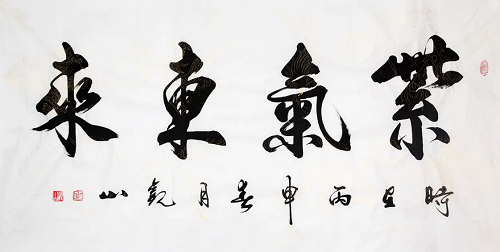 紫氣東來
時在丙申春月觀山